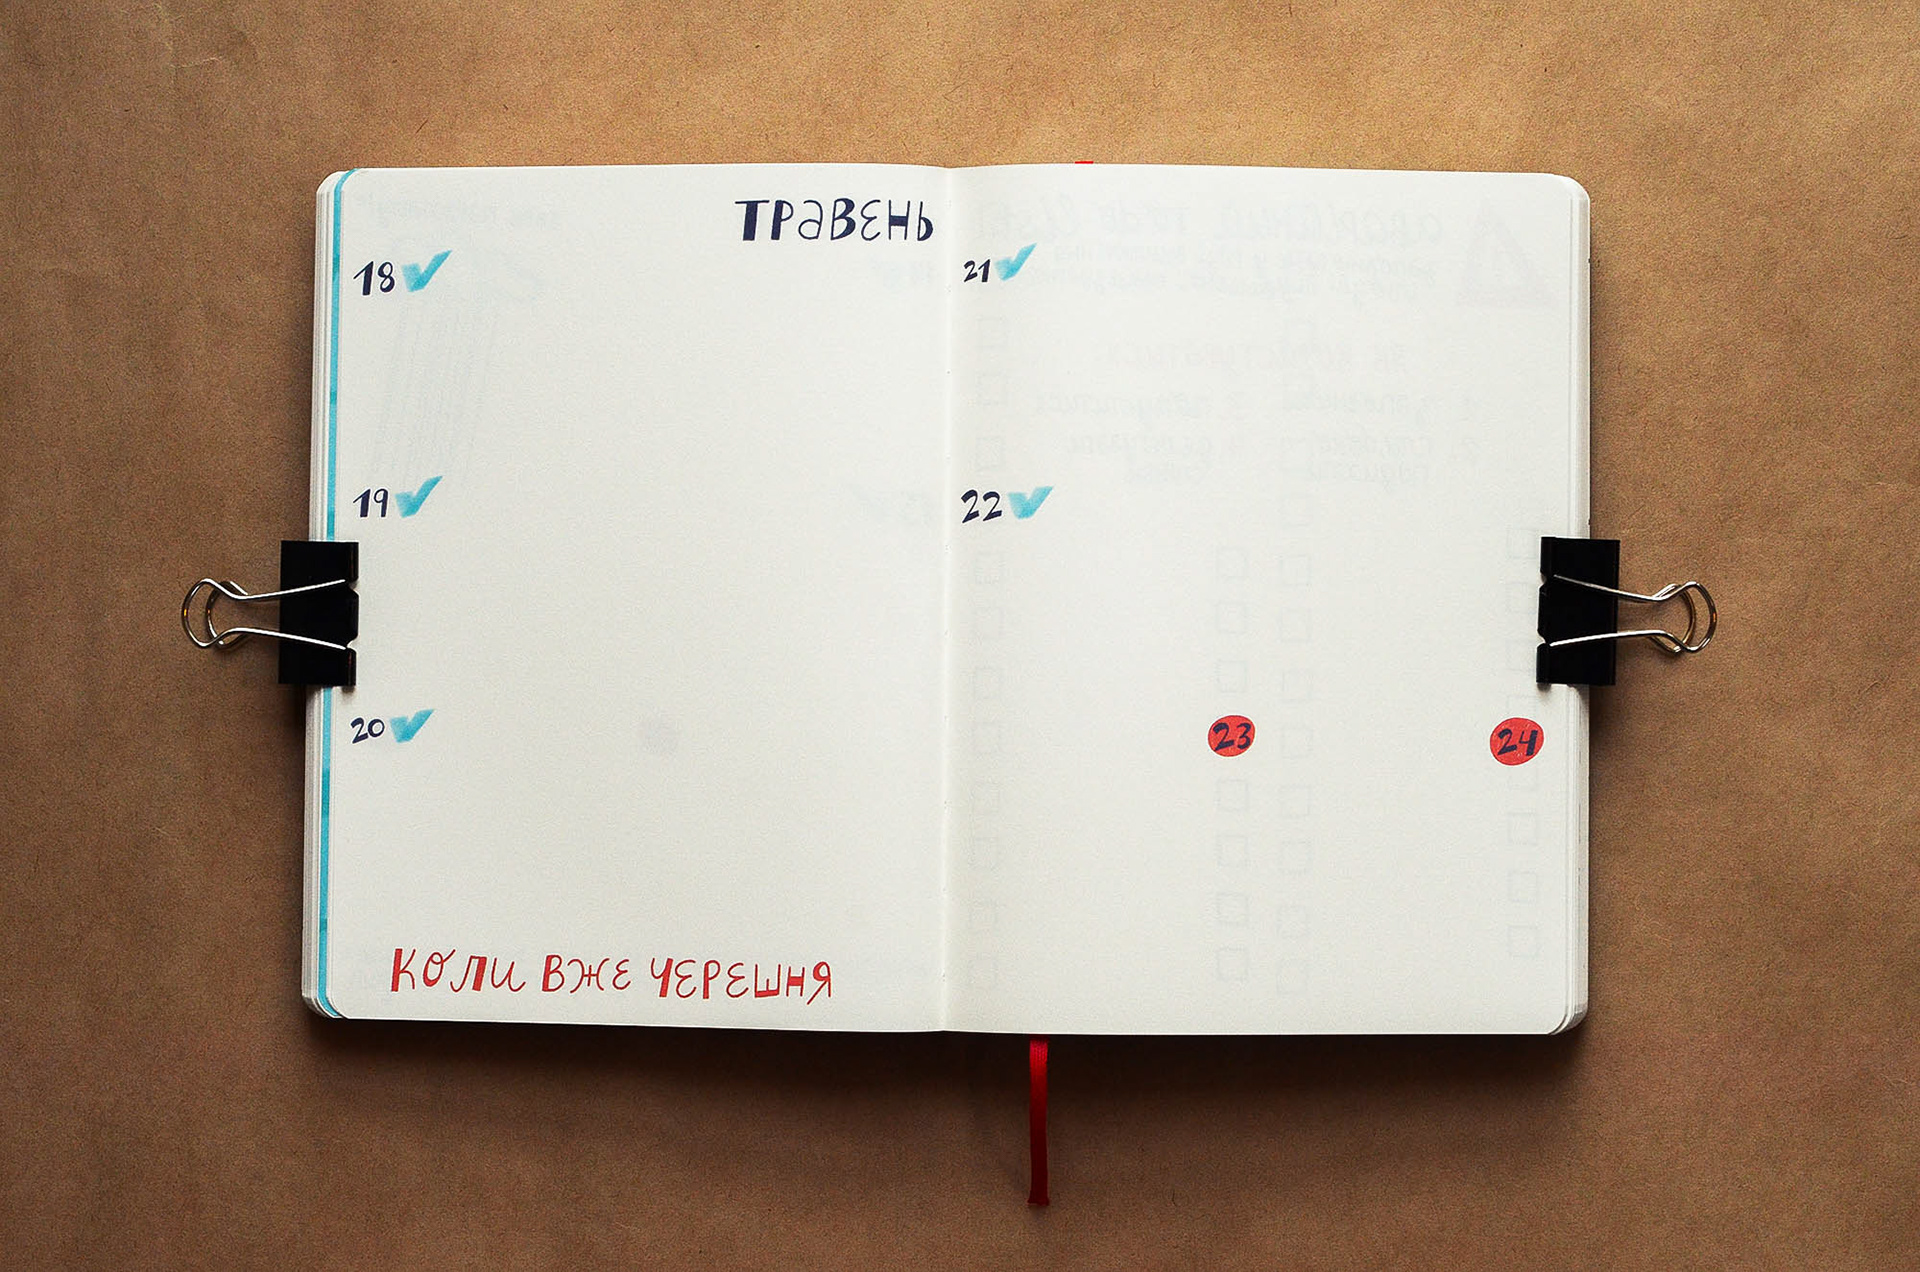 ТРАВЕНЬ
18
19
20
КОЛИ ВЖЕ ЧЕРЕШНЯ
21
22
23
24